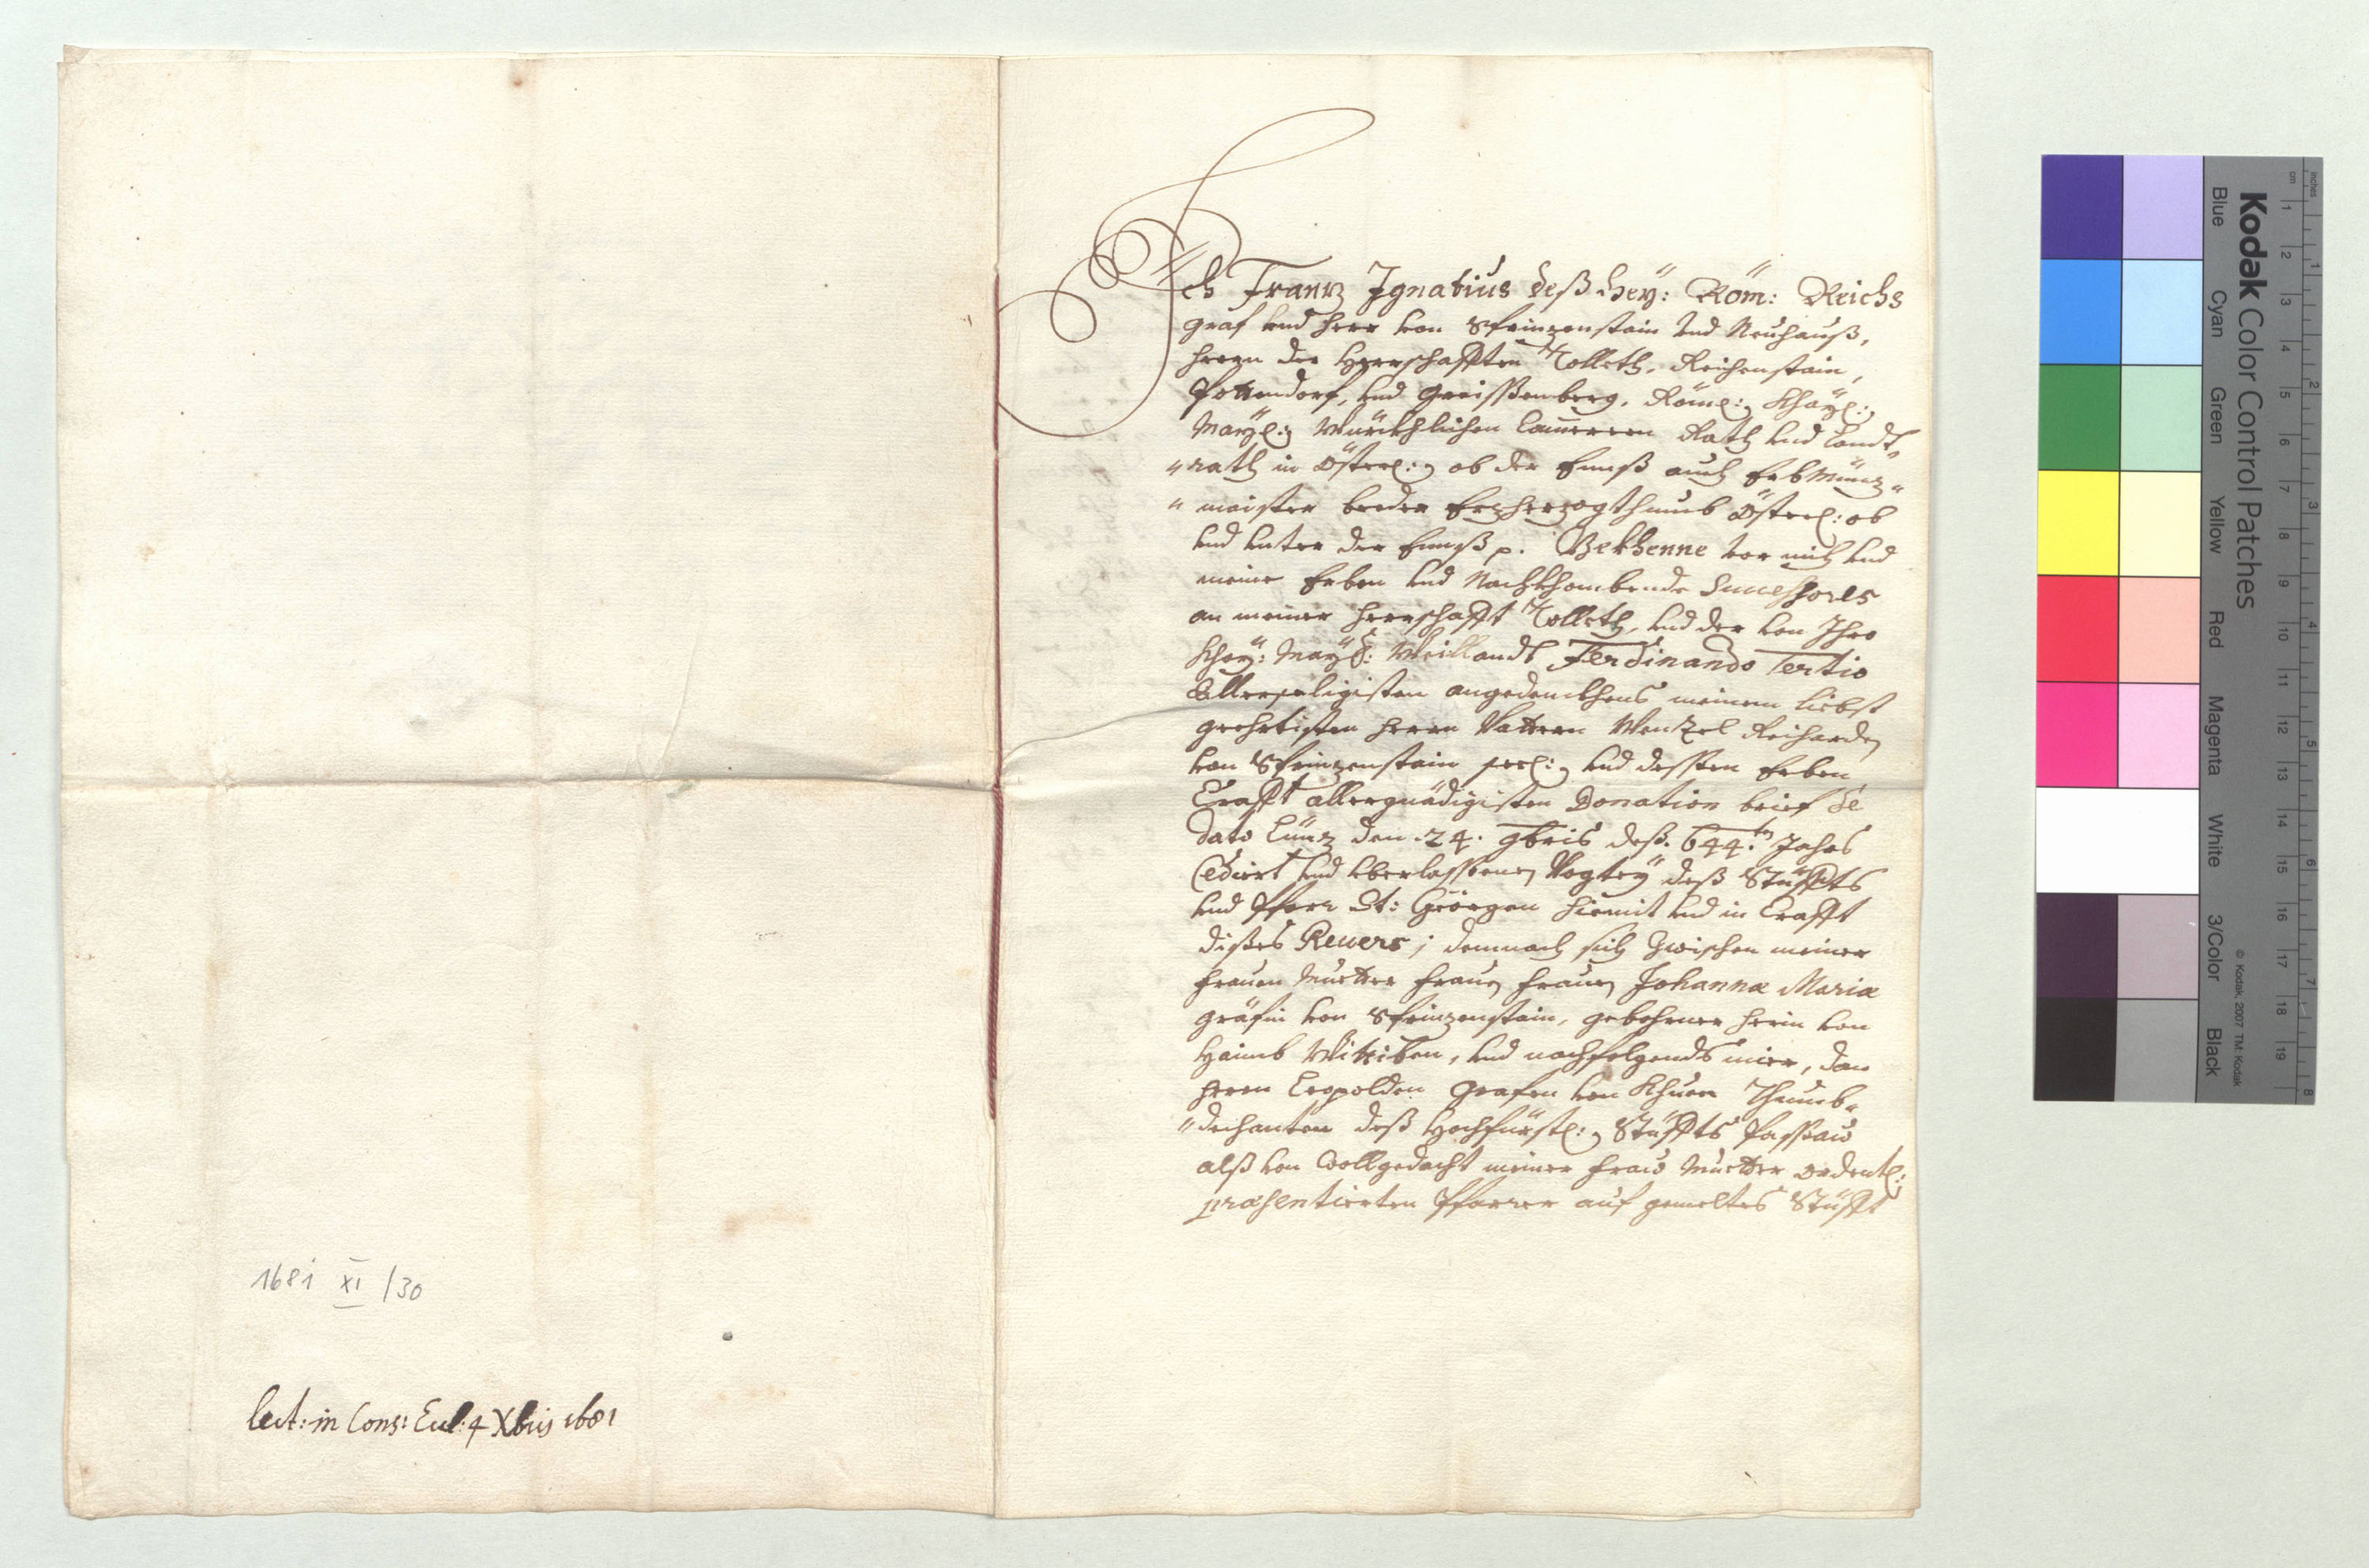 1681 XI /30
lect: in Cons: Eccl: 4 Xbris 1681
Ich Frantz Ignatius deß Hey: Röm: Reichs
Graf vnd Herr von Sprinzenstain vnd Neuhauß,
Herrn der Herrschafften Tolleth, Reichenstain,
Pottendorf, vnd Greissenberg, Röm: Khayl:
Mayl: Würckhlichen Camerern Rath vnd Landt
rath in Össterl: ob der Ennß auch Erbmünz
maister beeder Erzherzogthumb Össterl: ob
vnd vnter der Ennß p. Bekhenne vor mich vnd
meine Erben vnd Nachkhombende Successores
an meiner Herrschafft Tolleth, vnd der von Ihro
Khay: May: Weillandt Ferdinando Tertio
Allerseeligisten angedenckhens meinem liebst
geehrtisten Herrn Vattern Wentzel Reicharden
von Sprinzenstain seel: vnd dessen Erben
Crafft allergnädigisten Donation brief de
dato Lünz den 24. 9bris deß 644.tn Jahrs
Cediert vnd vberlassenen Vogtey deß Stüffts
vnd Pfarr St: Georgen hiemit vnd in Crafft
dißes Reuers; demnach sich zwischen meiner
Frauen Muetter Frauen Frauen Johanna Maria
Gräfin von Sprinzenstain, gebohrner Herrin von
Haimb Wittiben, vnd nachfolgends mier, dan
Herrn Leopolden Grafen von Khuen Thumb
dechanten deß Hochfürstl: Stüffts Passau
alß von Wollgedacht meiner Frau Muetter ordentl:
præsentierten Pfarrer auf gemeltes Stüfft
Kodak Color Control Patches
Blue
Cyan
Green
Yellow
Red
Magenta
White
3/Color
Black
© Kodak, 2007 TM: Kodak
inches
cm
1 2 3 4 5 6 7 8 9 10 11 12 13 14 15 16 17 18 19
1 2 3 4 5 6 7 8